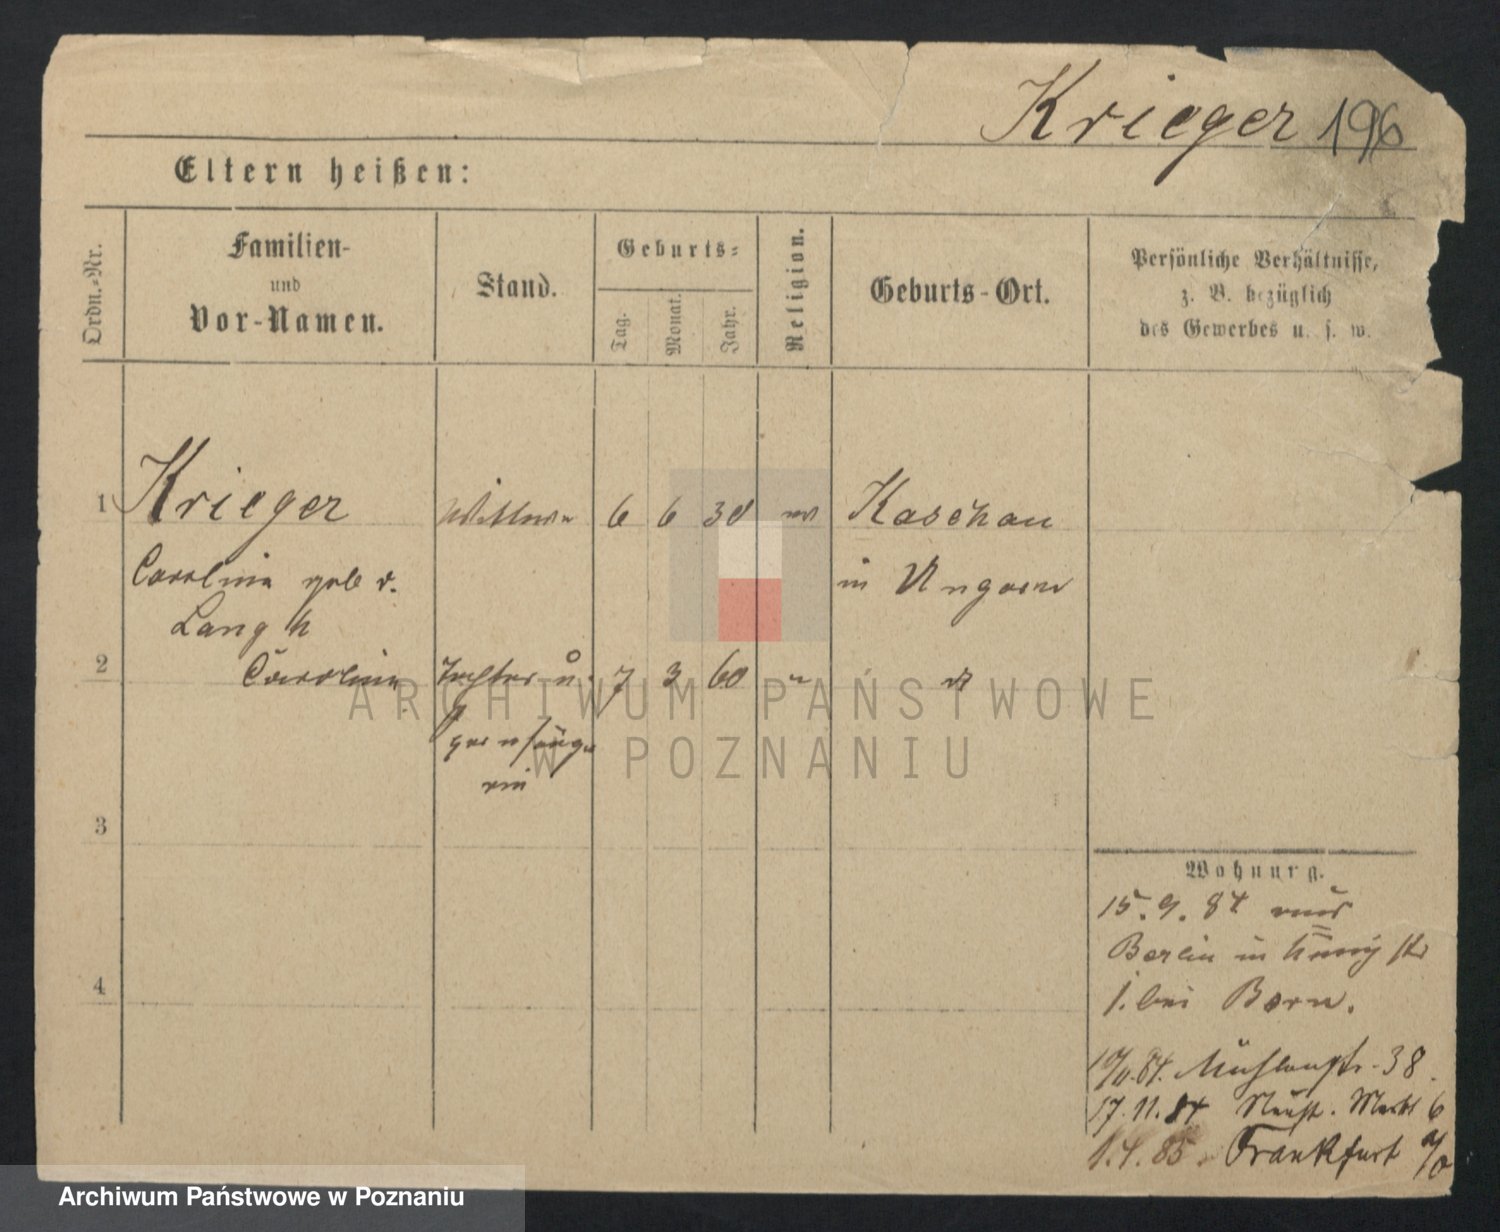 Krieger 196
Eltern heißen:
Ordn.-Nr.
Familien-
und
Vor-Namen.
Stand.
Geburts-
Tag.
Monat.
Jahr.
Religion.
Geburts-Ort.
Persönliche Verhältnisse,
z. B. bezüglich
des Gewerbes u. s. w.
1 Krieger Wittwe 6 6 30 Kaschau
Carolina geb v. in Ungarn
Langh
2 Carolina Tochter u. 7 3 60
3
4
Wohnung.
15. 9. 84 aus
Berlin in
1. bei Born.
84. Mühlenstr. 38.
17. 11. 84 Neust. Markt 6
1. 4. 85. Frankfurt a/O
ARCHIWUM PAŃSTWOWE
W POZNANIU
Archiwum Państwowe w Poznaniu